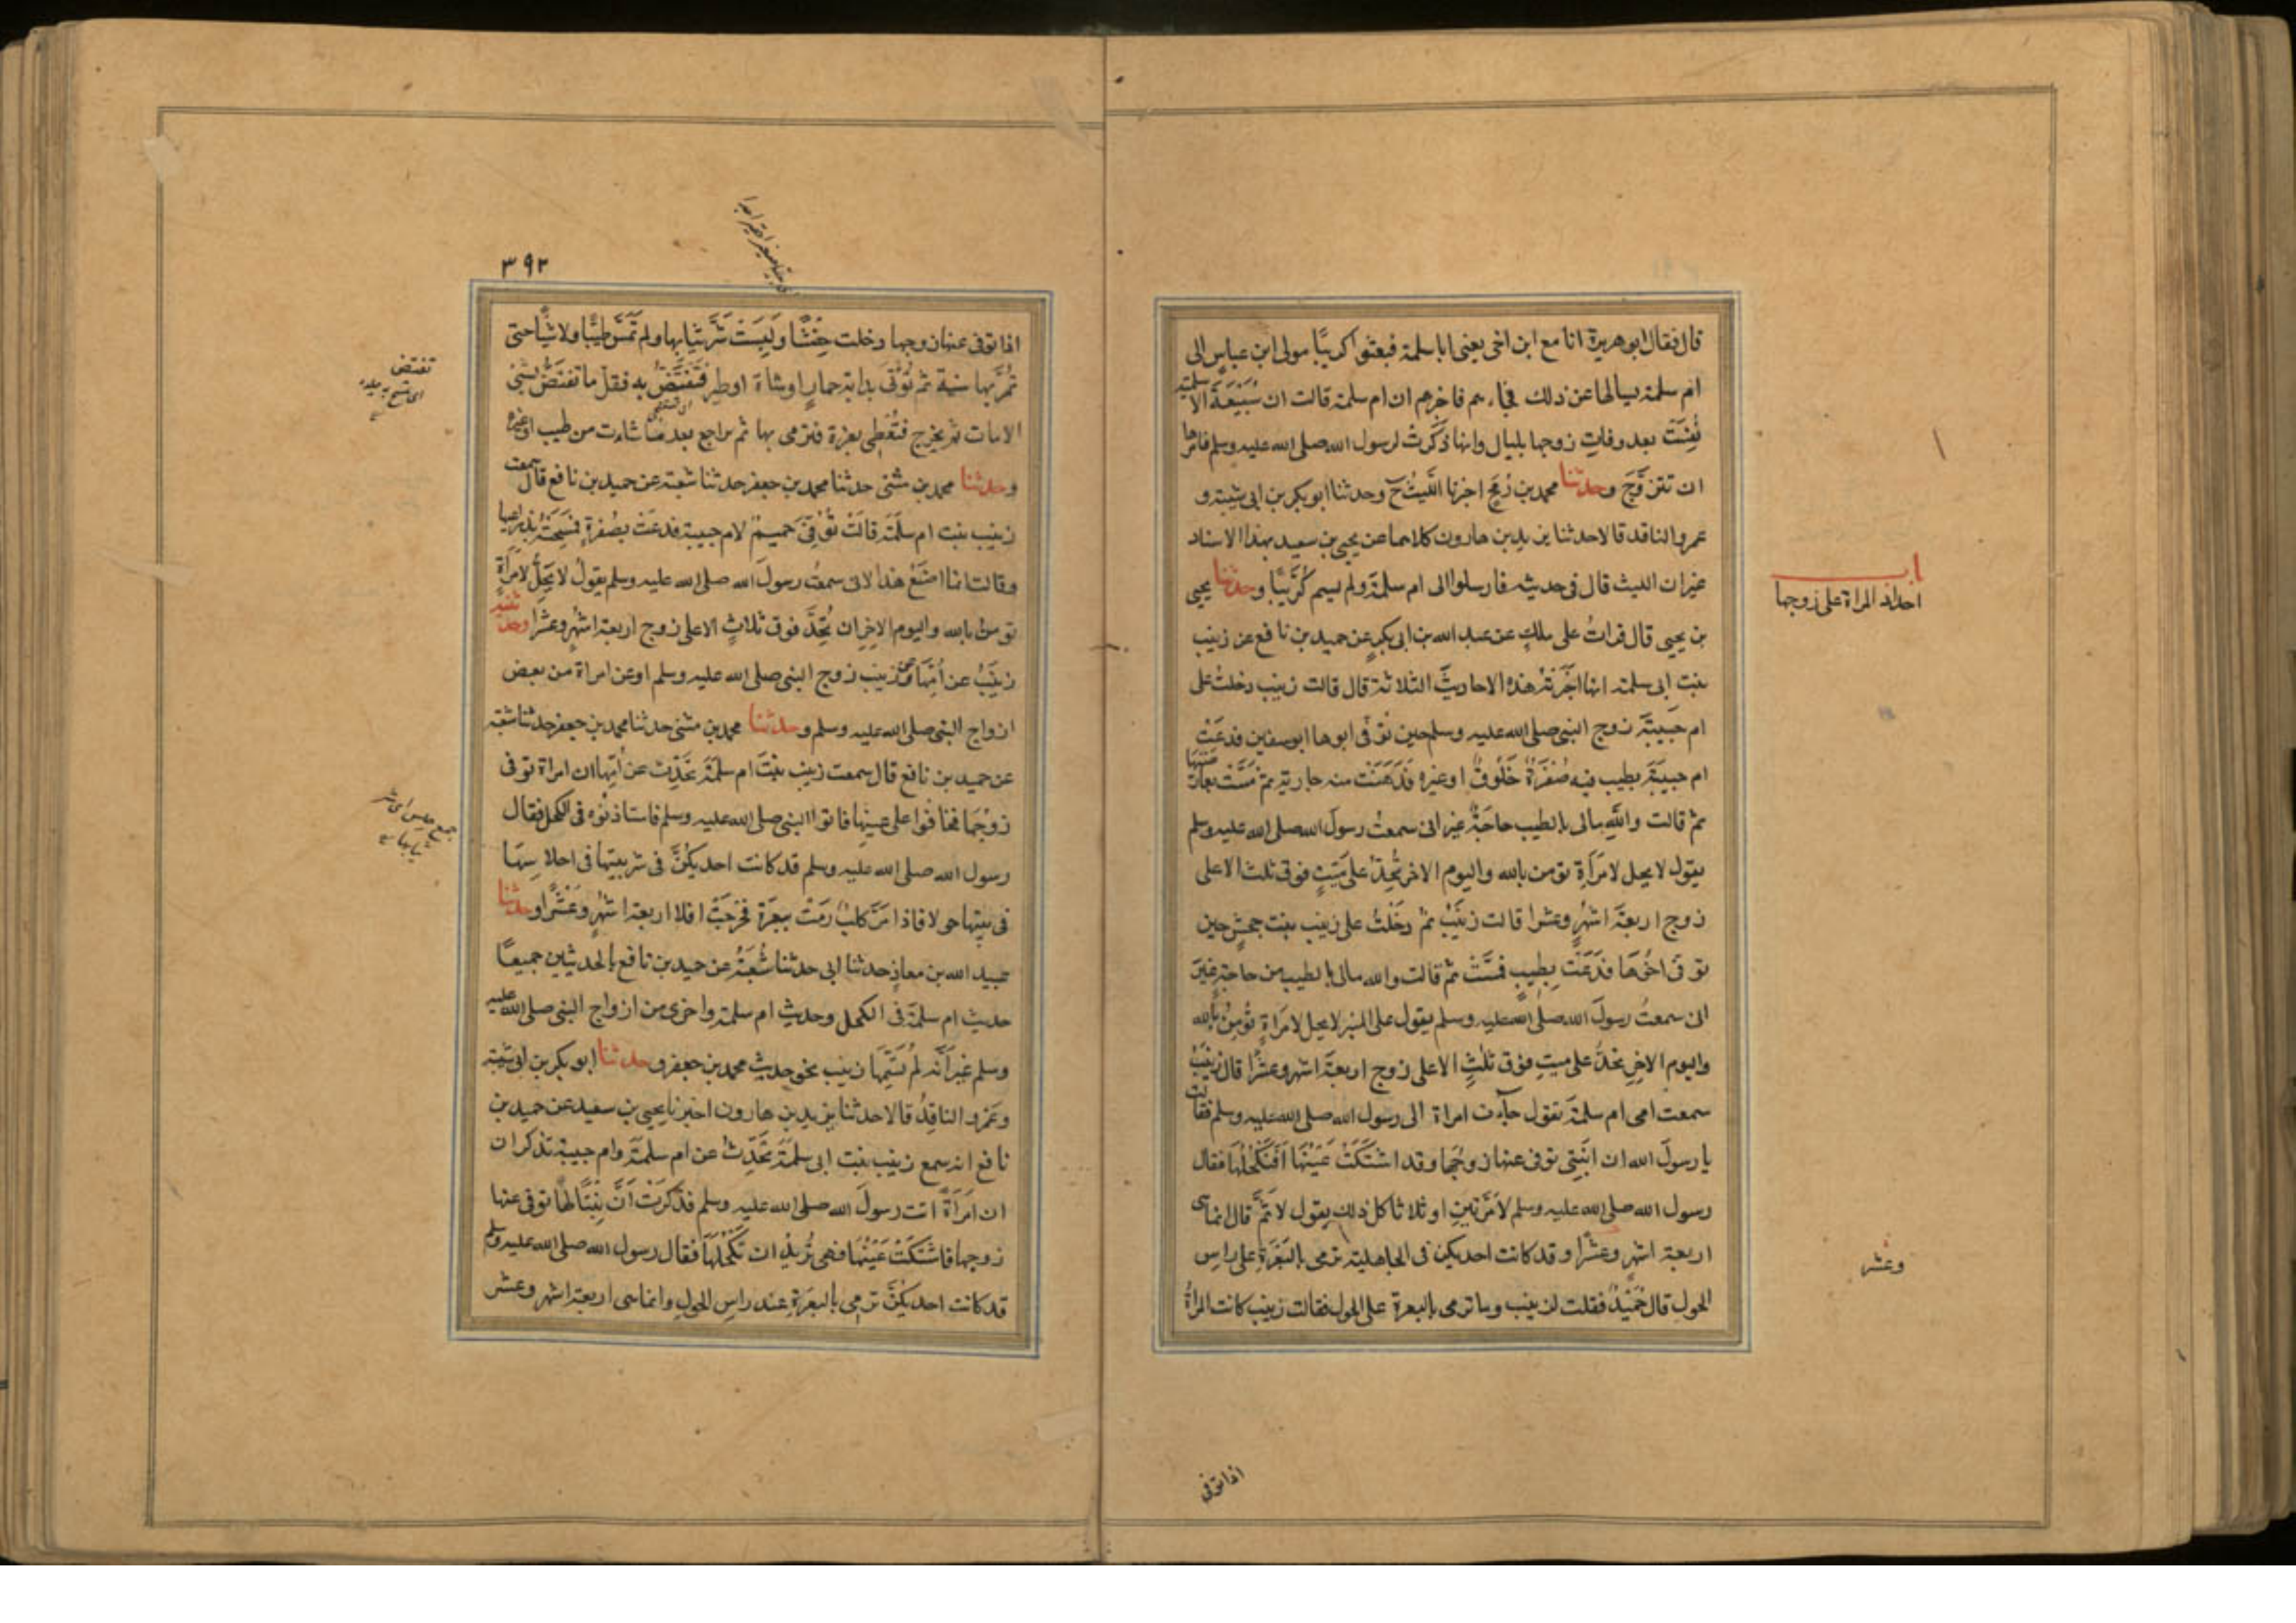 قال فقال ابو هريرة انا مع ابن اخى يعنى ابا سلمة فبعثوا كريبًا مولى ابن عباسٍ الى
ام سلمة يسالها عن ذلك فجاءهم فاخبرهم ان ام سلمة قالت ان سُبَيْعَةَ الاسلمية
نُفِسَتْ بعد وفات زوجها بليال وانها ذكرتْ لرسول الله صلى الله عليه وسلم فامرها
ان تتزوّجَ وحدثنا محمد بن رُمْحٍ اخبرنا اللَّيثُ ح وحدثنا ابو بكر بن ابى شيبة و
عمرو الناقد قالا حدثنا يزيد بن هارون كلاهما عن يحيى بن سعيد بهذا الاسناد
غير ان الليث قال فى حديثه فارسلوا الى ام سلمةَ ولم يسم كُرَيْبًا وحدثنا يحيى
بن يحيى قال قراتُ على ملكٍ عن عبد الله بن ابى بكرٍ عن حميد بن نافع عن زينب
بنت ابى سلمة انها اخبَرَتْهُ هذه الاحاديثَ الثلاثة قال قالت زينب دخلتُ على
ام حَبيبَةَ زوج النبى صلى الله عليه وسلم حين توفى ابوها ابو سفين فدعَتْ
ام حبيبَةَ بطيب فيه صُفْرَةٌ خَلُوقٌ او غيره فَدَهَنَتْ منه جارية ثم مَسَّتْ بعارضيها
ثم قالت واللهِ مالى بالطيب حاجَةٌ غير انى سمعتُ رسولَ الله صلى الله عليه وسلم
يقول لا يحل لامَرأةٍ تؤمن بالله واليوم الاخر تُحِدُّ على مَيّتٍ فوق ثلث الا على
زوج اربعَةَ اشهُرٍ وعشرا قالت زينَبُ ثم دخَلْتُ على زينب بنت جحشٍ حين
توفى اخُوهَا فدَعَتْ بِطِيبٍ فمسَّتْ ثم قالت والله مالى بالطيب من حاجَةٍ غيرَ
انى سمعتُ رسولَ الله صلى الله عليه وسلم يقول على المنبر لا يحل لامَراةٍ تُؤمِنُ بالله
واليوم الاخِرِ تحدُّ على ميتٍ فوق ثلثٍ الا على زوج اربعةَ اشهر وعشرًا قال زينَبُ
سمعت امى ام سلمةَ تقول جآءت امراة الى رسول الله صلى الله عليه وسلم فقالت
يا رسولَ الله ان ابْنَتِى توفى عنها زوجُها وقد اشتكَتْ عَيْنُهَا اَفَنَكْحُلُهَا فقال
رسول الله صلى الله عليه وسلم لا مَرَّتَينِ او ثلاثا كل ذلك يقول لا ثمَّ قال انما هى
اربعة اشهُرٍ وعشرًا وقد كانت احديكن فى الجاهلية ترمى بالبَعَرَةِ على راسِ
الحول قال حُمَيْدٌ فقلت لزينب وما ترمى بالبعرة على الحول فقالت زينب كانت المرأةُ
باب
احداد المراة على زوجها
وعشر
اذا توفى
٣٩٢
اذا توفى عنها زوجها دخلت حِفْشًا ولَبِسَتْ شَرَّ ثيابها ولم تمَسَّ طيبًا ولا شيًا حتى
تمُرَّ بها سنية ثم تُؤْتَى بدابة حمارٍ او شاة او طيرٍ فتَفْتَضُّ به فقل ما تفتضّ بشئ
الا مات ثم يخرج فتُعْطى بعرة فترمى بها ثم تراجع بعد ما شاءت من طيب او غيره
وحدثنا محمد بن مثنى حدثنا محمد بن جعفر حدثنا شعبة عن حميد بن نافع قال سمعت
زينب بنت ام سلَمَة قالَتْ تُوُفِّىَ حَميمٌ لام حبيبة فدعَتْ بصُفرةٍ فمَسَحَتْهُ بذراعيها
وقالت انما اصنَعُ هذا لانى سمعتُ رسولَ الله صلى الله عليه وسلم يقول لا يَحِلُّ لامرَأةٍ
تؤمن بالله واليوم الاخِرِ ان تُحِدَّ فوق ثلاثٍ الا على زوج اربعة اشهُرٍ وعشرًا وحدثتنيه
زينَبُ عن اُمِّهَا وعن زينب زوج النبى صلى الله عليه وسلم او عن امراة من بعض
ازواج النبى صلى الله عليه وسلم وحدثنا محمد بن مثنى حدثنا محمد بن جعفر حدثنا شعبة
عن حميد بن نافع قال سمعت زينب بنتَ ام سلمَةَ تحَدِّث عن اُمِّهَا ان امراة توفى
زوْجُهَا فخافُوا على عينِهَا فاتوا النبى صلى الله عليه وسلم فاستاذنُوْه فى الكحل فقال
رسول الله صلى الله عليه وسلم قد كانت احديكنَّ فى شر بيتها فى احلاسِهَا
فى بيتها حولا فاذا مَرَّ كلبٌ رَمَتْ ببعَرَة فخرجَتْ افلا اربعة اشهُرٍ وعَشْرًا وحدثنا
عبيد الله بن معاذٍ حدثنا ابى حدثنا شُعبَةُ عن حميد بن نافع بالحديثين جميعًا
حديثِ ام سلمَةَ فى الكحل وحديثِ ام سلمةَ واخرى من ازواج النبى صلى الله عليه
وسلم غيرَ اَنَّه لم تُسَمِّهَا زينب نحو حديث محمد بن جعفر وحدثنا ابو بكر بن ابى شيبة
وعَمْرو الناقِدُ قالا حدثنا يزيد بن هارون اخبرنا يحيى بن سعيد عن حميد بن
نافع انه سمع زينب بنت ابى سلَمَةَ تُحَدِّثُ عن ام سلمَةَ وام حبيبة تذكران
ان امَرَأةً اتت رسولَ الله صلى الله عليه وسلم فذكرَتْ اَنَّ بِنْتًا لهَا توفى عنها
زوجها فاشتكَتْ عَيْنُهَا فهى تُريدُ ان تَكْحُلَهَا فقال رسول الله صلى الله عليه وسلم
قد كانت احديكُنَّ ترمى بالبعَرَةِ عند راسِ الحول وانما هى اربعة اشهر وعشر
تفتض